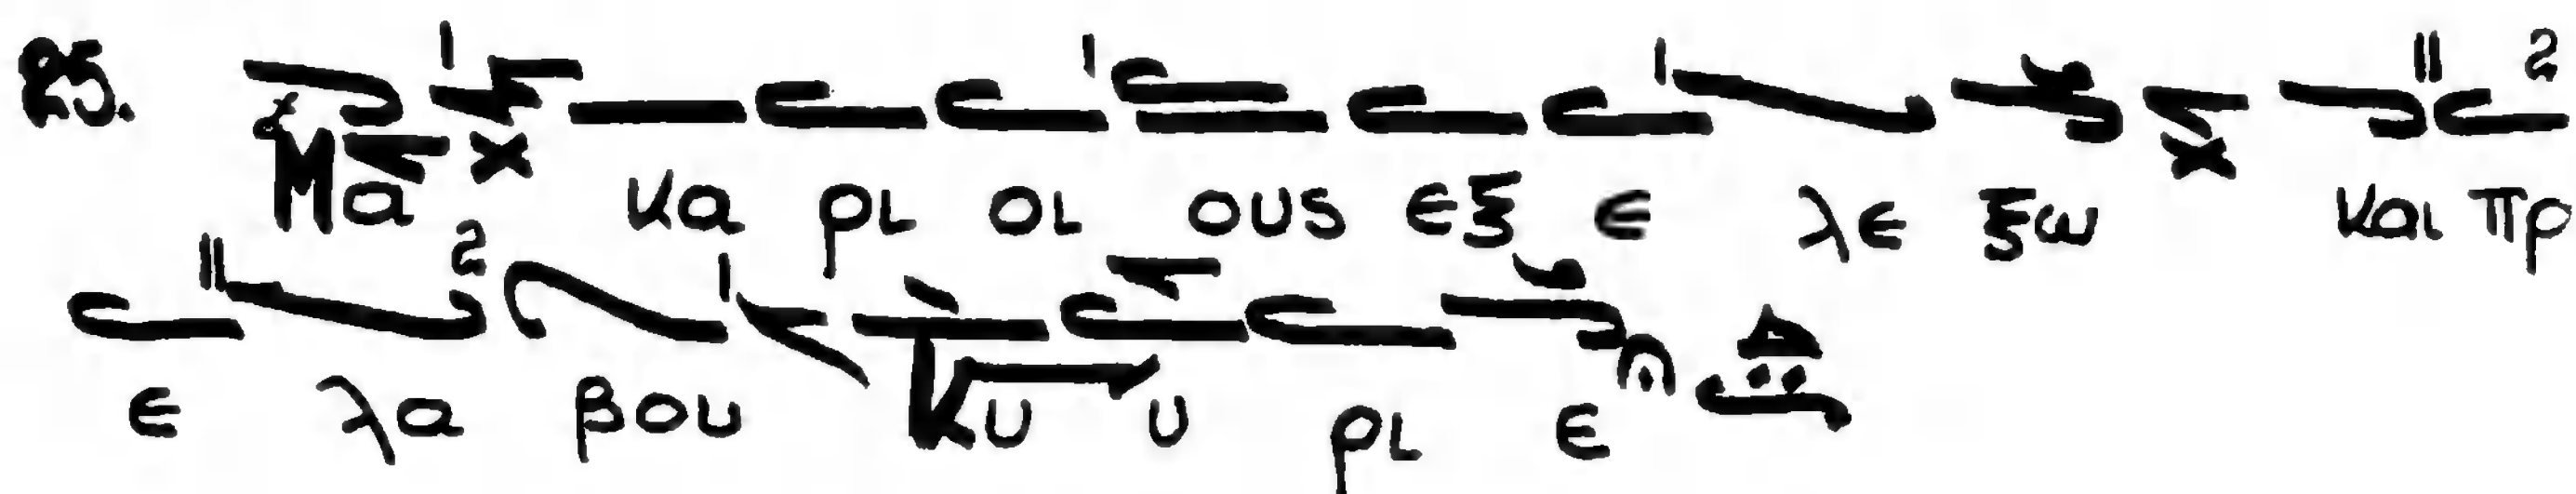 25. Μα κα ρι οι ους εξ ε λε ξω και πρ
ε λα βου Κυ υ ρι ε